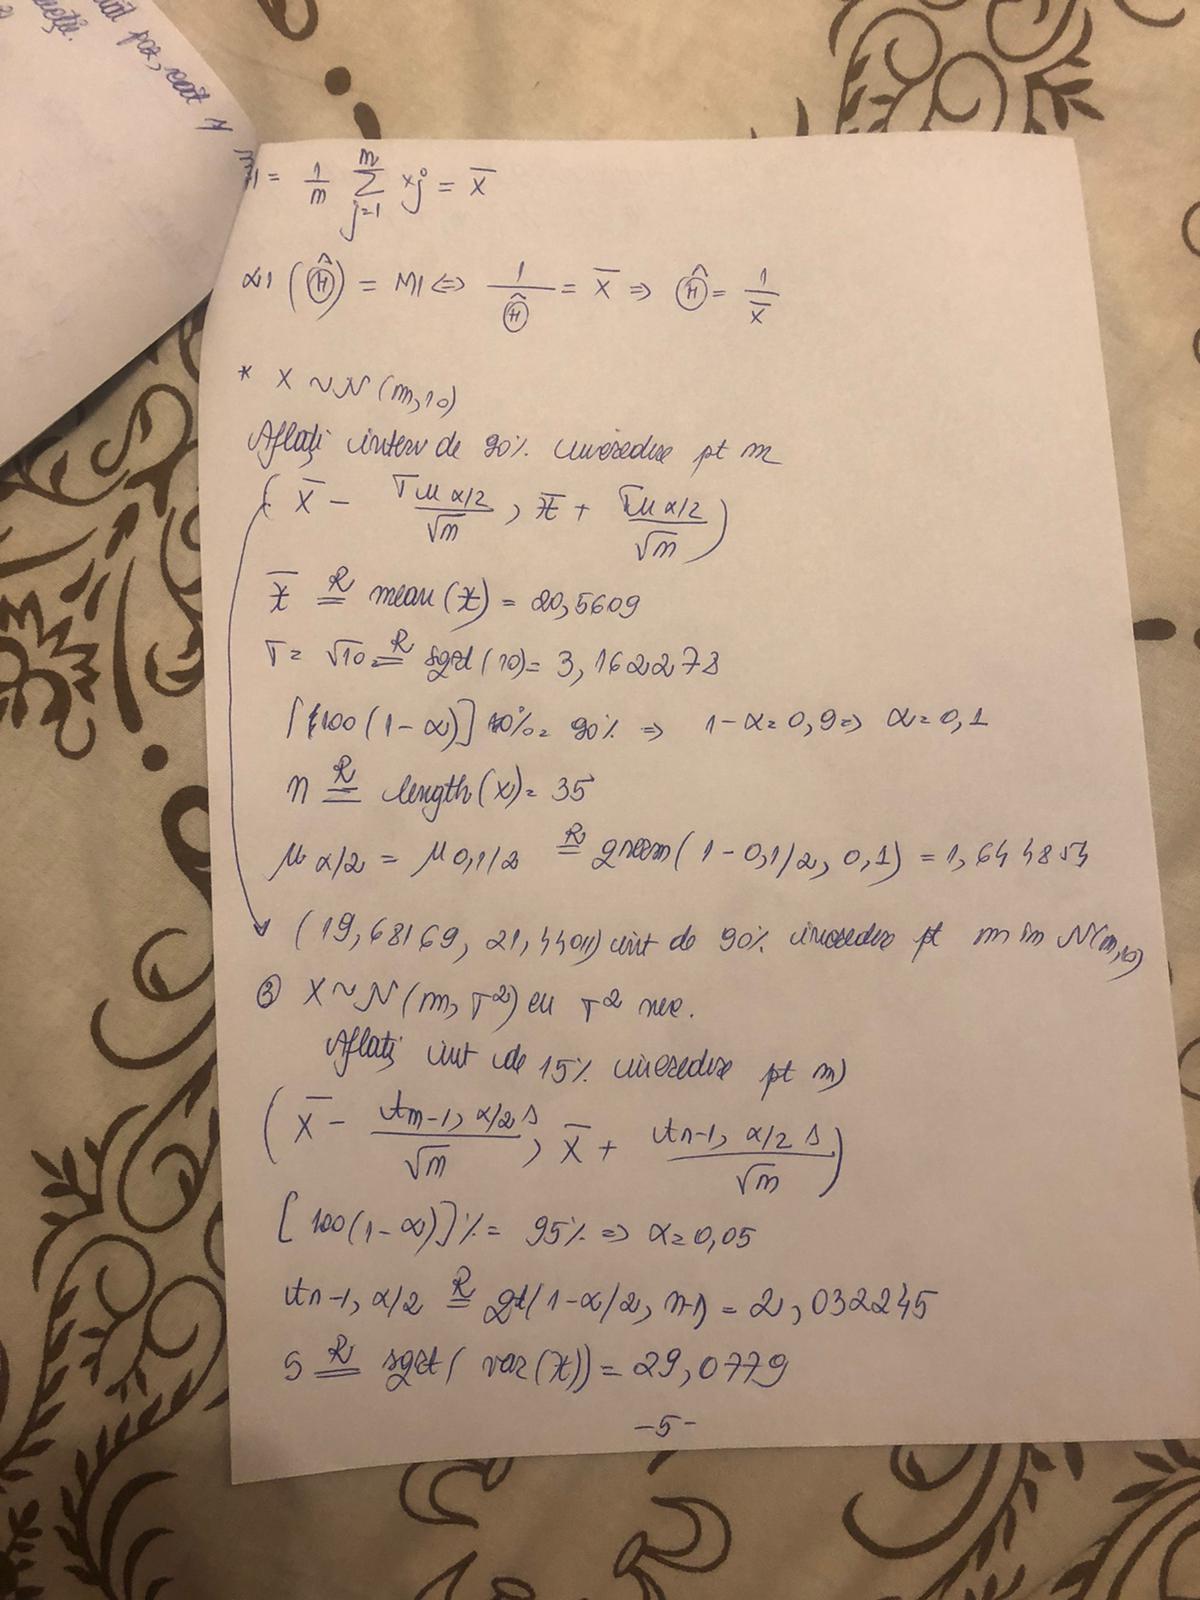 poz, cât y
M1 = 1/m ∑_{j=1}^{m} xj = x̄
α1 (Ĥ) = M1 ⇔ 1/Ĥ = x̄ ⇒ Ĥ = 1/x̄
* X ~ N(m,10)
Aflați interv de 90% încredere pt m
(x̄ − σ u α/2 / √n , x̄ + σ u α/2 / √n)
x̄ =^R mean(x) = 20,5609
σ = √10 =^R sqrt(10) = 3,1622278
[100(1−α)]% = 90% ⇒ 1−α = 0,9 ⇒ α = 0,1
n =^R length(x) = 35
μ α/2 = μ 0,1/2 =^R qnorm(1−0,1/2, 0,1) = 1,644854
(19,68169, 21,44011) int de 90% încredere pt m în N(m,10)
③ X ~ N(m, σ²) cu σ² nec.
Aflați int de 15% încredere pt m)
(x̄ − tn−1, α/2 s / √n , x̄ + tn−1, α/2 s / √n)
[100(1−α)]% = 95% ⇒ α = 0,05
tn−1, α/2 =^R qt(1−α/2, n−1) = 2,032245
s =^R sqrt(var(x)) = 29,0779
−5−